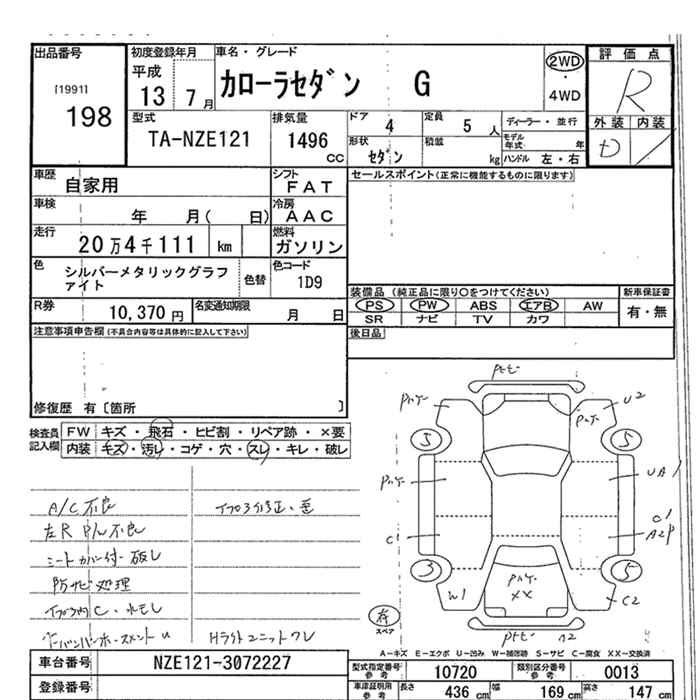 出品番号
[1991]
198
初度登録年月
平成
13 7月
車名・グレード
カローラセダン G
2WD
・
4WD
評価点
R
外装 内装
型式
TA-NZE121
排気量
1496
CC
ドア 4
定員 5 人
ディーラー・並行
形状 セダン
積載 kg
モデル年式 年
ハンドル 左・右
車歴 自家用
シフト FAT
セールスポイント(正常に機能するものに限ります)
車検 年 月( 日)
冷房 AAC
走行 20万4千111 km
燃料 ガソリン
色 シルバーメタリックグラファイト
色替
色コード 1D9
装備品 (純正品に限り○をつけてください)
新車保証書
PS PW ABS エアB AW
有・無
SR ナビ TV カワ
R券 10,370円
名変通知期限 月 日
後日品
注意事項申告欄(不具合内容等は具体的に記入して下さい)
修復歴 有〔箇所 〕
検査員記入欄
FW キズ・飛石・ヒビ割・リペア跡・×要
内装 キズ・汚レ・コゲ・穴・スレ・キレ・破レ
A/C不良
左R P/W不良
シートカバー付・破レ
防サビ処理
U2
5 5
UA1
C1
3 5
W1
XX
C2
スペア
A2
A-キズ E-エクボ U-凹み W-補修跡 S-サビ C-腐食 XX-交換済
車台番号 NZE121-3072227
登録番号
型式指定番号 参考 10720
類別区分番号 参考 0013
車庫証明用 参考 長さ 436 cm 幅 169 cm 高さ 147 cm